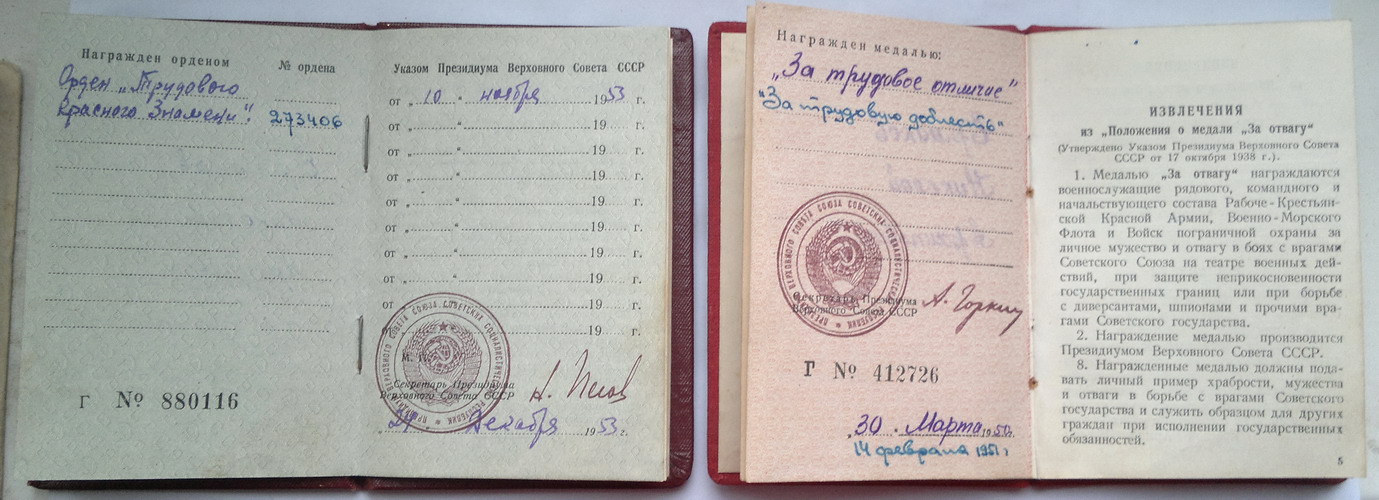 Награжден орденом
№ ордена
Орден „Трудового
Красного Знамени".
273406
Г № 880116
Указом Президиума Верховного Совета СССР
от „ 10 " ноября 1953 г.
от „ " 19 г.
от „ " 19 г.
от „ " 19 г.
от „ " 19 г.
от „ " 19 г.
от „ " 19 г.
от „ " 19 г.
от „ 19 г.
19 г.
М. П.
Секретарь Президиума
Верховного Совета СССР
Декабря 1953 г.
Награжден медалью:
„За трудовое отличие"
"За трудовую доблесть"
ПРЕЗИДИУМ ВЕРХОВНОГО СОВЕТА СОЮЗА СОВЕТСКИХ СОЦИАЛИСТИЧЕСКИХ РЕСПУБЛИК
Секретарь Президиума
Верховного Совета СССР
А. Горкин
Г № 412726
„30 . Марта 1950 г.
14 февраля 1951 г.
ИЗВЛЕЧЕНИЯ
из „Положения о медали „За отвагу"
(Утверждено Указом Президиума Верховного Совета
СССР от 17 октября 1938 г.).
1. Медалью „За отвагу" награждаются
военнослужащие рядового, командного и
начальствующего состава Рабоче-Крестьян-
ской Красной Армии, Военно-Морского
Флота и Войск пограничной охраны за
личное мужество и отвагу в боях с врагами
Советского Союза на театре военных дей-
ствий, при защите неприкосновенности
государственных границ или при борьбе
с диверсантами, шпионами и прочими вра-
гами Советского государства.
2. Награждение медалью производится
Президиумом Верховного Совета СССР.
8. Награжденные медалью должны пода-
вать личный пример храбрости, мужества
и отваги в борьбе с врагами Советского
государства и служить образцом для других
граждан при исполнении государственных
обязанностей.
5